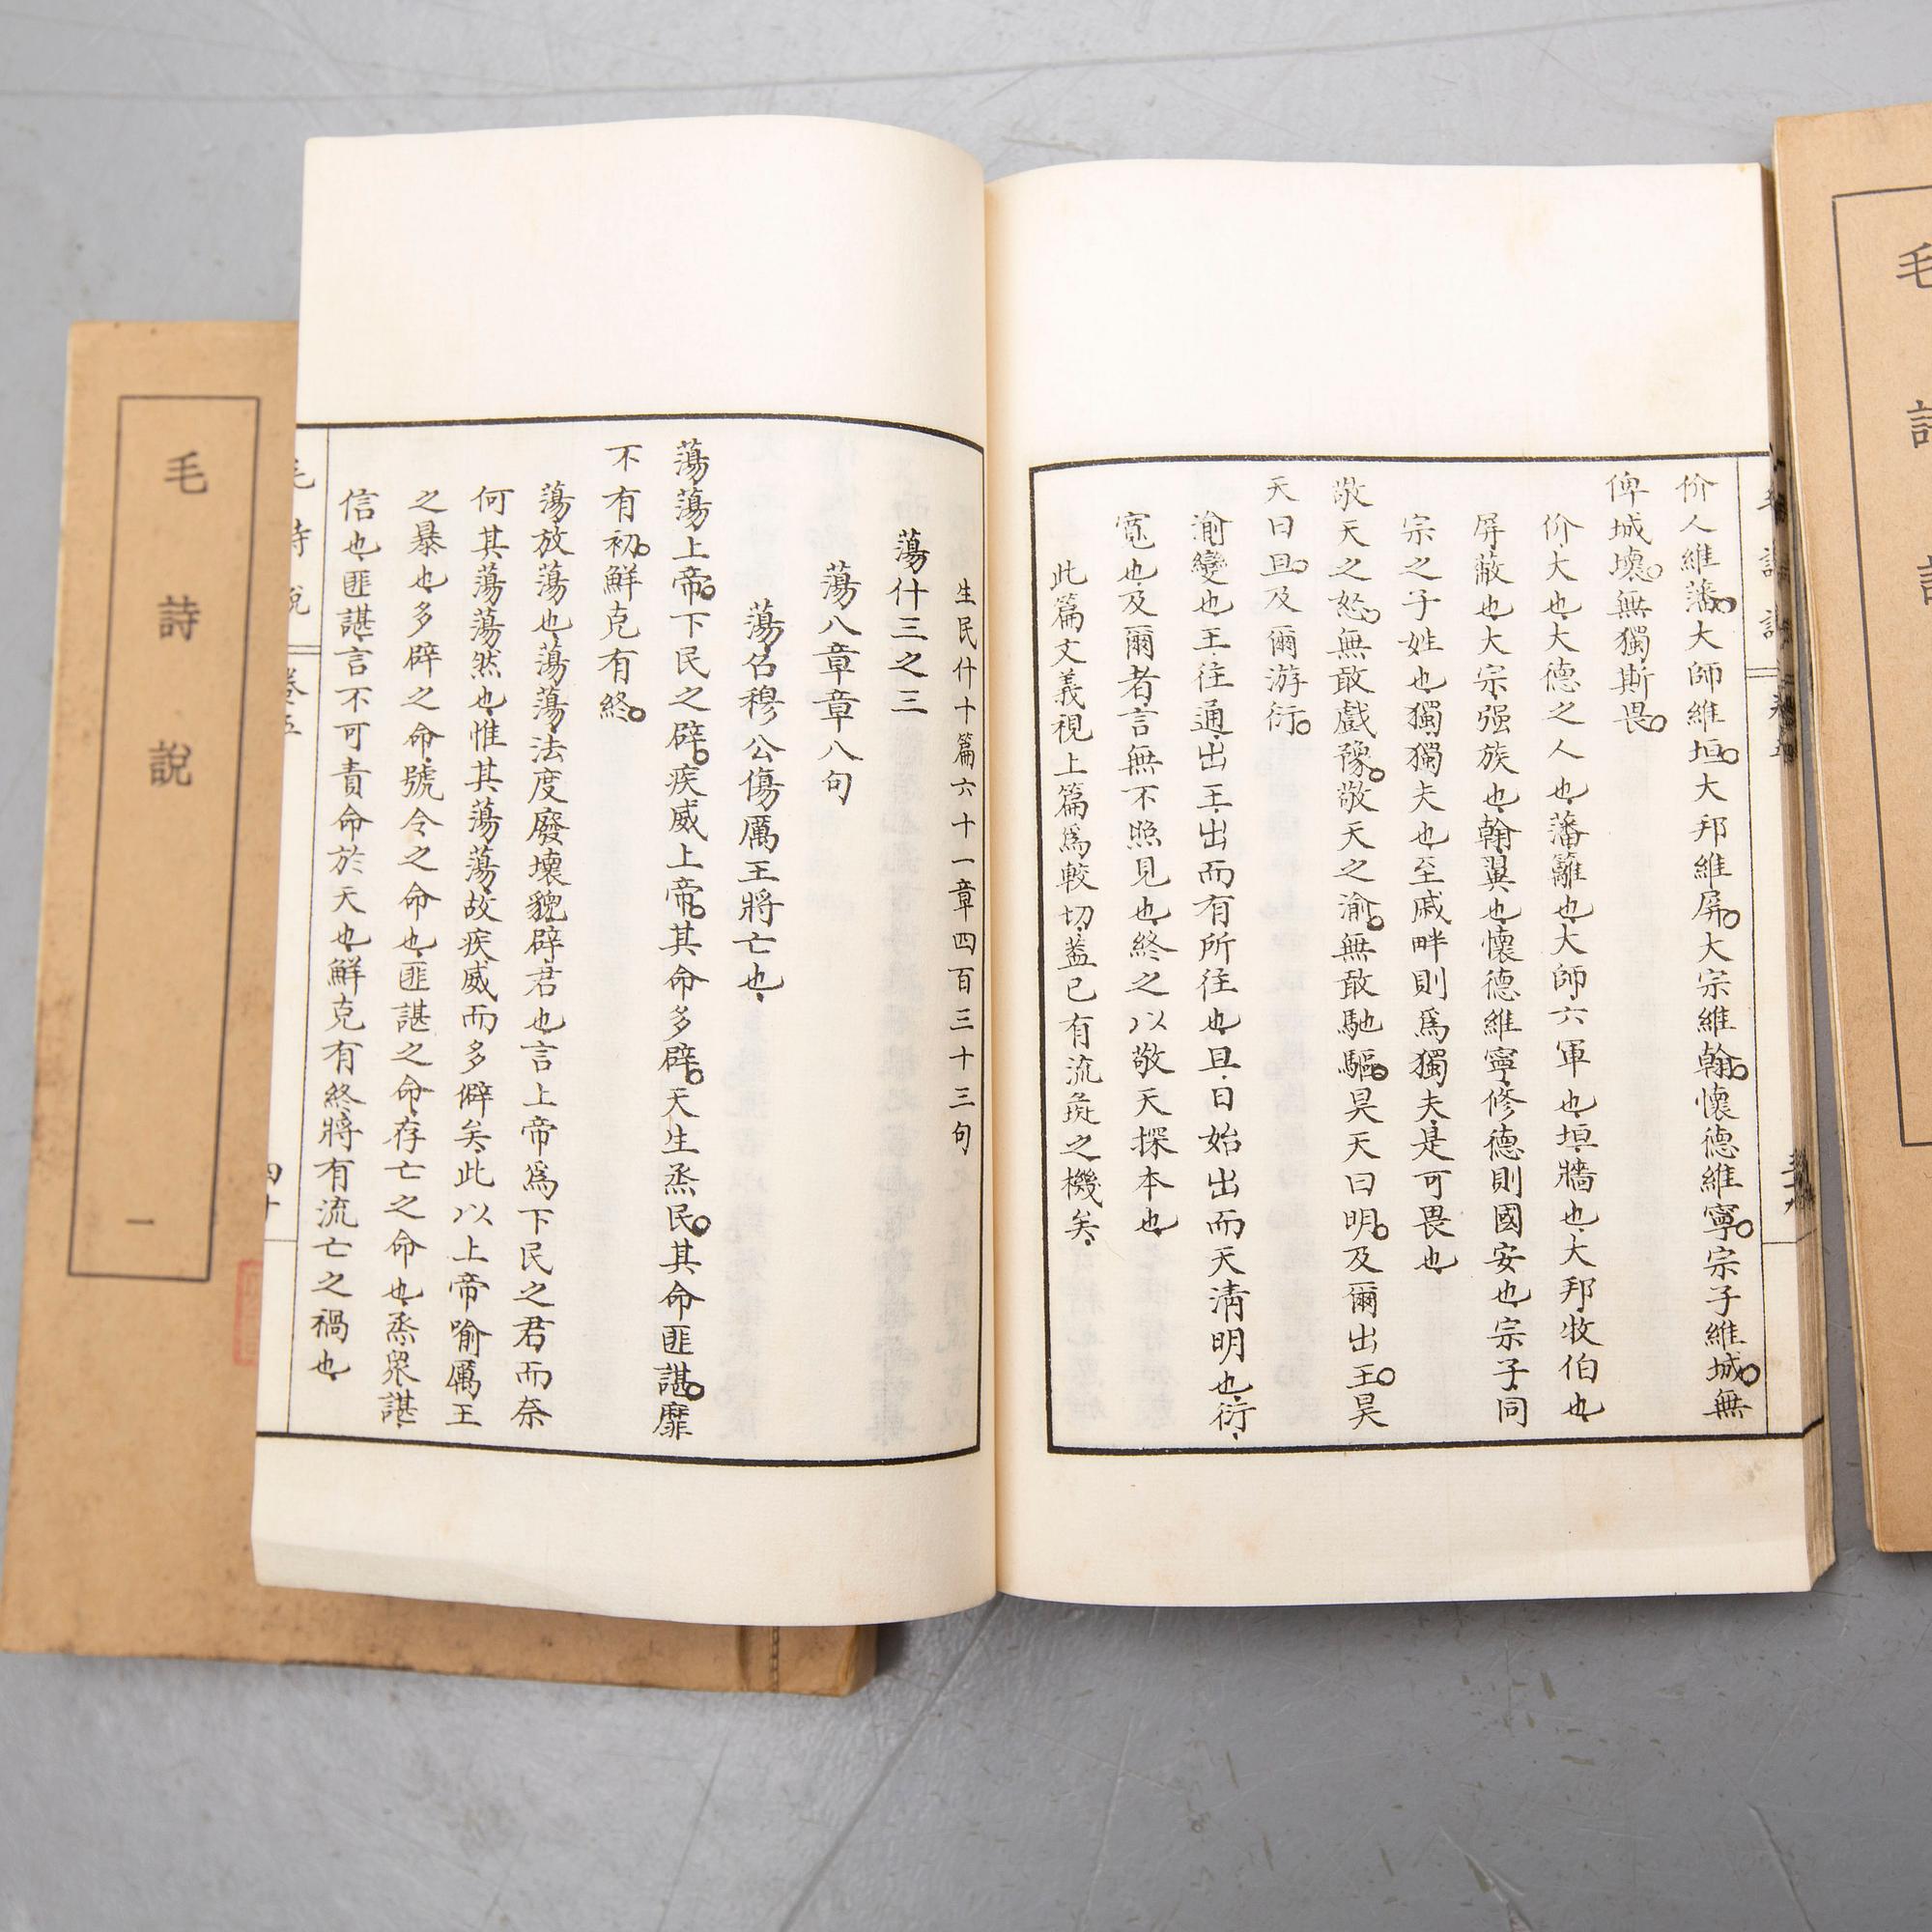 价人維藩大師維垣大邦維屏大宗維翰懷德維寧宗子維城無
俾城壞無獨斯畏
价大也大德之人也藩籬也大師六軍也垣牆也大邦牧伯也
屏蔽也大宗强族也翰翼也懷德維寧修德則國安也宗子同
宗之子姓也獨獨夫也至戚畔則爲獨夫是可畏也
敬天之怒無敢戲豫敬天之渝無敢馳驅昊天曰明及爾出王昊
天曰旦及爾游衍
渝變也王往通出王出而有所往也旦日始出而天淸明也衍
寬也及爾者言無不照見也終之以敬天探本也
此篇文義視上篇爲較切蓋已有流彘之機矣
生民什十篇六十一章四百三十三句
蕩什三之三
蕩八章章八句
蕩召穆公傷厲王將亡也
蕩蕩上帝下民之辟疾威上帝其命多辟天生烝民其命匪諶靡
不有初鮮克有終
蕩放蕩也蕩蕩法度廢壞貌辟君也言上帝爲下民之君而奈
何其蕩蕩然也惟其蕩蕩故疾威而多僻矣此以上帝喻厲王
之暴也多辟之命號令之命也匪諶之命存亡之命也烝衆諶
信也匪諶言不可責命於天也鮮克有終將有流亡之禍也
毛詩說
卷五
四十
毛詩說
一
毛